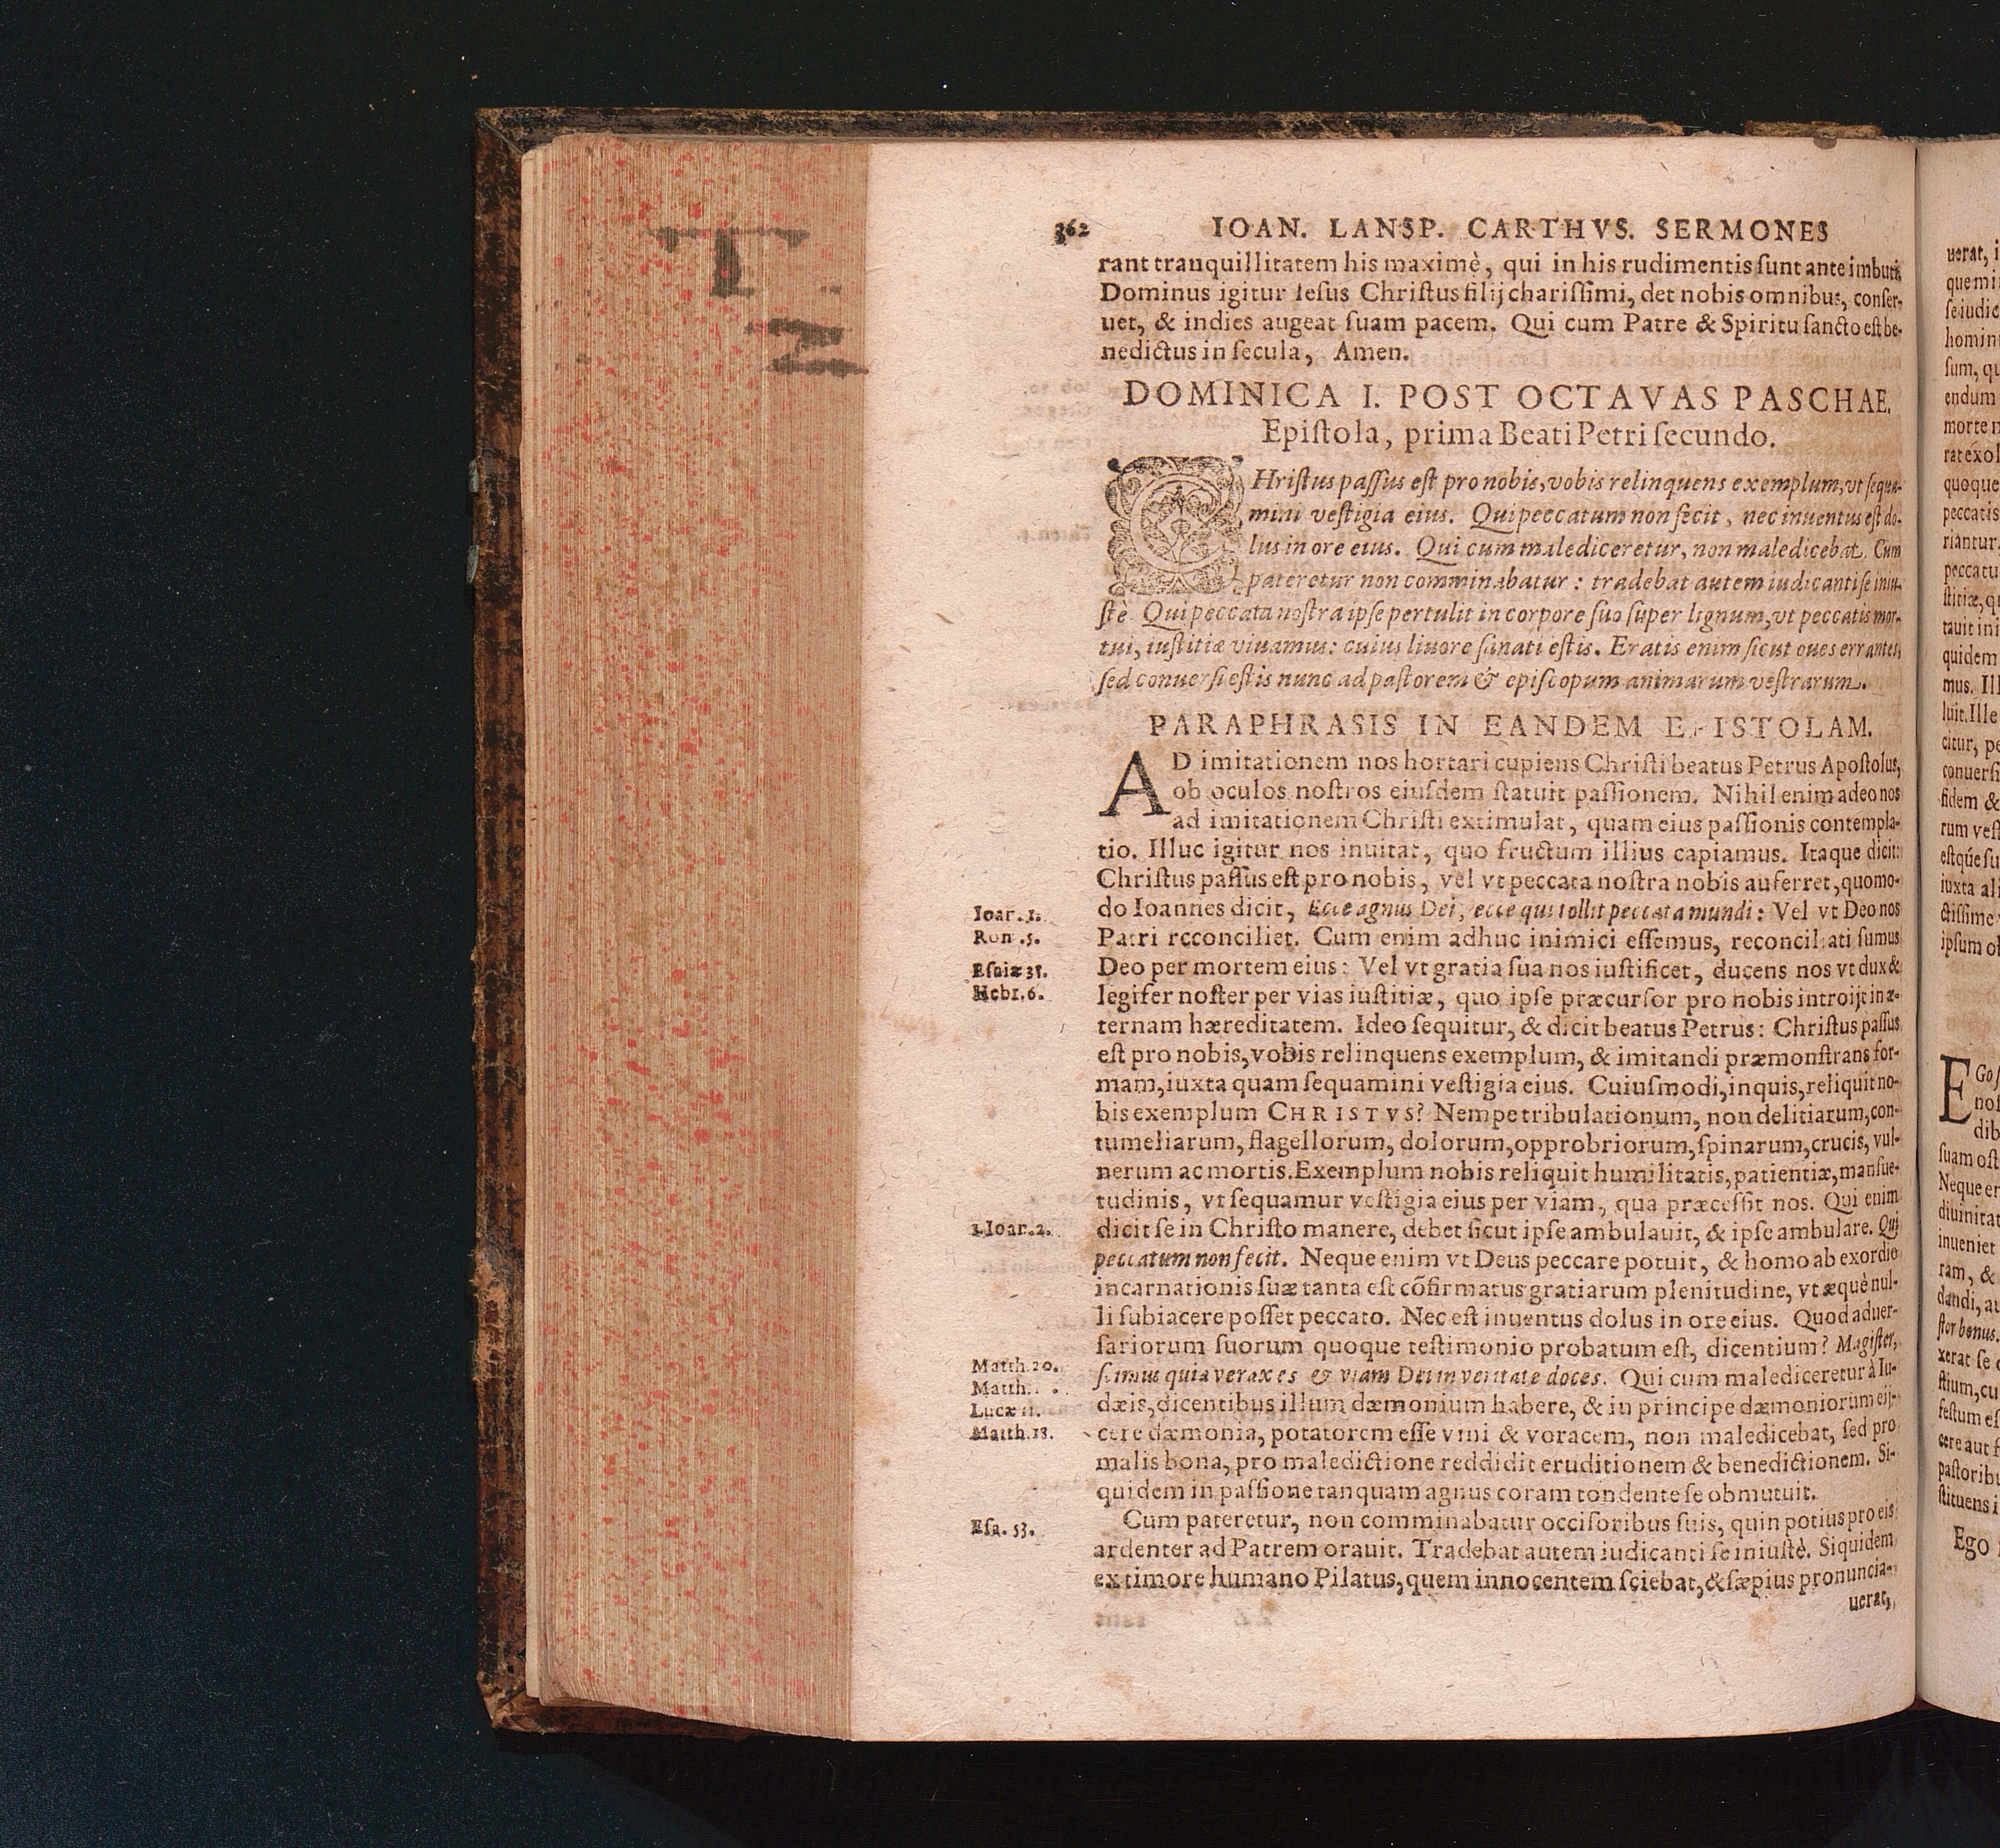 362 IOAN. LANSP. CARTHVS. SERMONES
rant tranquillitatem his maximè, qui in his rudimentis ſunt ante imbuti.
Dominus igitur Ieſus Chriſtus filij chariſſimi, det nobis omnibus, conſer-
uet, & indies augeat ſuam pacem. Qui cum Patre & Spiritu ſancto eſt be-
nedictus in ſecula, Amen.
DOMINICA I. POST OCTAVAS PASCHAE.
Epiſtola, prima Beati Petri ſecundo.
CHriſtus paſſus eſt pro nobis, vobis relinquens exemplum, vt ſequa-
mini veſtigia eius. Qui peccatum non fecit, nec inuentus eſt do-
lus in ore eius. Qui cum malediceretur, non maledicebat. Cum
pateretur non comminabatur: tradebat autem iudicanti ſe iniu-
ſtè. Qui peccata noſtra ipſe pertulit in corpore ſuo ſuper lignum, vt peccatis mor-
tui, iuſtitiæ viuamus: cuius liuore ſanati eſtis. Eratis enim ſicut oues errantes,
ſed conuerſi eſtis nunc ad paſtorem & epiſcopum animarum veſtrarum.
PARAPHRASIS IN EANDEM EPISTOLAM.
AD imitationem nos hortari cupiens Chriſti beatus Petrus Apoſtolus,
ob oculos noſtros eiuſdem ſtatuit paſſionem. Nihil enim adeo nos
ad imitationem Chriſti extimulat, quam eius paſſionis contempla-
tio. Illuc igitur nos inuitat, quo fructum illius capiamus. Itaque dicit:
Chriſtus paſſus eſt pro nobis, vel vt peccata noſtra nobis auferret, quomo-
Ioan. 1. do Ioannes dicit, Ecce agnus Dei, ecce qui tollit peccata mundi: Vel vt Deo nos
Rom. 5. Patri reconciliet. Cum enim adhuc inimici eſſemus, reconciliati ſumus
Eſaiæ Deo per mortem eius: Vel vt gratia ſua nos iuſtificet, ducens nos vt dux &
Hebr. 6. legifer noſter per vias iuſtitiæ, quo ipſe præcurſor pro nobis introijt in æ-
ternam hæreditatem. Ideo ſequitur, & dicit beatus Petrus: Chriſtus paſſus
eſt pro nobis, vobis relinquens exemplum, & imitandi præmonſtrans for-
mam, iuxta quam ſequamini veſtigia eius. Cuiuſmodi, inquis, reliquit no-
bis exemplum CHRISTVS? Nempe tribulationum, non delitiarum, con-
tumeliarum, flagellorum, dolorum, opprobriorum, ſpinarum, crucis, vul-
nerum ac mortis. Exemplum nobis reliquit humilitatis, patientiæ, manſue-
tudinis, vt ſequamur veſtigia eius per viam, qua præceſſit nos. Qui enim
1. Ioan. 2. dicit ſe in Chriſto manere, debet ſicut ipſe ambulauit, & ipſe ambulare. Qui
peccatum non fecit. Neque enim vt Deus peccare potuit, & homo ab exordio
incarnationis ſuæ tanta eſt cōfirmatus gratiarum plenitudine, vt æquè nul-
li ſubiacere poſſet peccato. Nec eſt inuentus dolus in ore eius. Quod aduer-
ſariorum ſuorum quoque teſtimonio probatum eſt, dicentium? Magiſter,
Matth. 20. ſcimus quia verax es & viam Dei in veritate doces. Qui cum malediceretur à Iu-
Matth. dæis, dicentibus illum dæmonium habere, & in principe dæmoniorum eij-
Lucæ 11.
Matth. cere dæmonia, potatorem eſſe vini & voracem, non maledicebat, ſed pro
malis bona, pro maledictione reddidit eruditionem & benedictionem. Si-
quidem in paſſione tanquam agnus coram tondente ſe obmutuit.
Eſa. 53. Cum pateretur, non comminabatur occiſoribus ſuis, quin potius pro eis
ardenter ad Patrem orauit. Tradebat autem iudicanti ſe iniuſtè. Siquidem
ex timore humano Pilatus, quem innocentem ſciebat, & ſæpius pronuncia-
uerat,